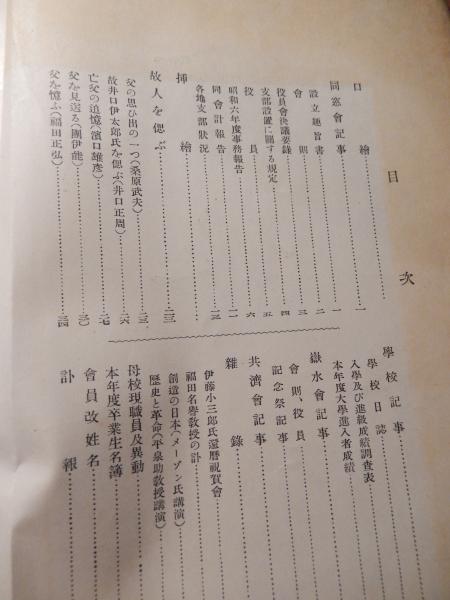 目次
口繪……一
同窓會記事……一
設立趣旨書……二
會則……三
役員會決議要錄……四
支部設置に關する規定……五
役員……六
昭和六年度事務報告……一一
同會計報告……一三
各地支部狀況
挿繪
故人を偲ぶ……二三
父の思ひ出の一つ(桑原武夫)……二三
故井口伊太郎氏を偲ぶ(井口正周)……二六
亡父の追憶(濱口雄彦)……二七
父を見送る(團伊能)……三〇
父を憶ふ(福田正弘)……三四
學校記事
學校日誌
入學及び進級成績調查表
本年度大學進入者成績
嶽水會記事
會則、役員
記念祭記事
共濟會記事
雜錄
伊藤小三郎氏還曆祝賀會
福田名譽教授の訃
創造の日本(メーゾン氏講演)
歷史と革命(平泉助教授講演)
母校現職員及異動
本年度卒業生名簿
會員改姓名
訃報